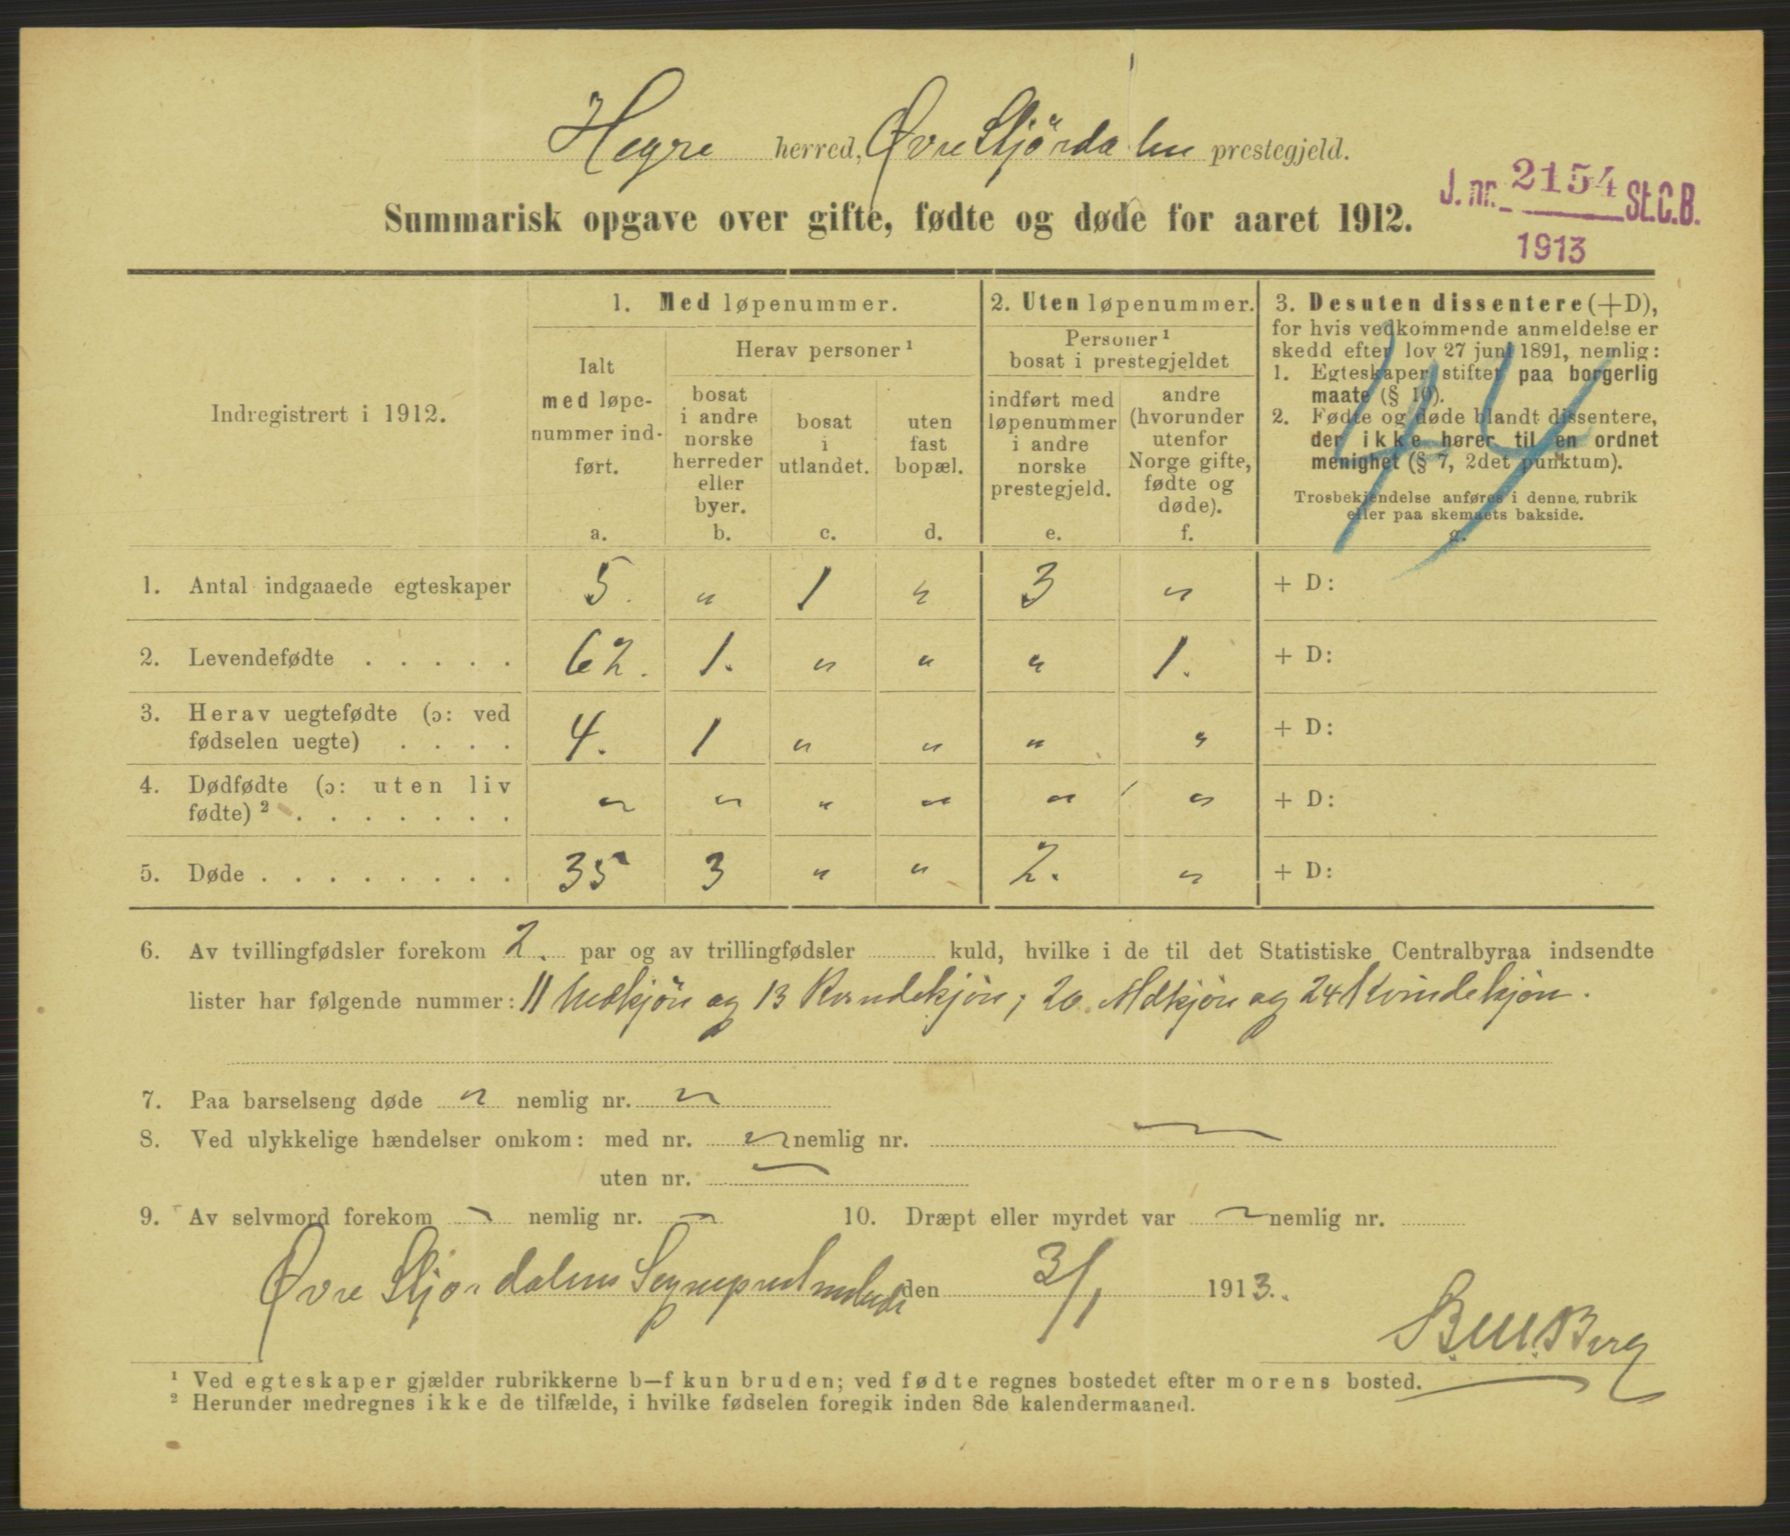 Hegre herred, Øvre Stjørdalen prestegjeld.
J. nr. 2154 St.C.B.
1913
Summarisk opgave over gifte, fødte og døde for aaret 1912.
Indregistrert i 1912.
1. Med løpenummer.
Ialt med løpenummer indført.
a.
Herav personer ¹
bosat i andre norske herreder eller byer.
b.
bosat i utlandet.
c.
uten fast bopæl.
d.
2. Uten løpenummer.
Personer ¹ bosat i prestegjeldet
indført med løpenummer i andre norske prestegjeld.
e.
andre (hvorunder utenfor Norge gifte, fødte og døde).
f.
3. Desuten dissentere (+D),
for hvis vedkommende anmeldelse er
skedd efter lov 27 juni 1891, nemlig:
1. Egteskaper stiftet paa borgerlig
maate (§ 10).
2. Fødte og døde blandt dissentere,
der ikke hører til en ordnet
menighet (§ 7, 2det punktum).
Trosbekjendelse anføres i denne rubrik
eller paa skemaets bakside.
g.
44
1. Antal indgaaede egteskaper 5. " 1 " 3 " + D:
2. Levendefødte . . . . . 62. 1. " " " 1. + D:
3. Herav uegtefødte (ɔ: ved
fødselen uegte) . . . . 4. 1 " " " " + D:
4. Dødfødte (ɔ: uten liv
fødte) ² . . . . . . . " " " " " " + D:
5. Døde . . . . . . . . 35 3 " " 2. " + D:
6. Av tvillingfødsler forekom 2. par og av trillingfødsler kuld, hvilke i de til det Statistiske Centralbyraa indsendte
lister har følgende nummer: 11 Mdkjøn og 13 Kvindekjøn; 20. Mdkjøn og 24 Kvindekjøn.
7. Paa barselseng døde " nemlig nr. "
8. Ved ulykkelige hændelser omkom: med nr. " nemlig nr. —
uten nr. —
9. Av selvmord forekom - nemlig nr. - 10. Dræpt eller myrdet var - nemlig nr.
Øvre Stjørdalens den 3/1 1913.
Berg
¹ Ved egteskaper gjælder rubrikkerne b—f kun bruden; ved fødte regnes bostedet efter morens bosted.
² Herunder medregnes ikke de tilfælde, i hvilke fødselen foregik inden 8de kalendermaaned.